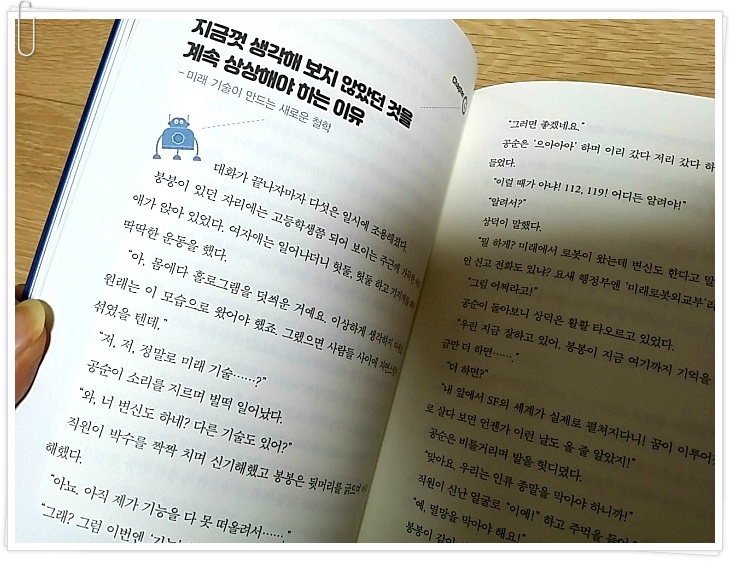 지금껏 생각해 보지 않았던 것을
계속 상상해야 하는 이유
- 미래 기술이 만드는 새로운 철학
Chapter
대화가 끝나자마자 다섯은 일시에 조용해졌다.
봉봉이 있던 자리에는 고등학생쯤 되어 보이는 주근깨 가득한
애가 앉아 있었다. 여자애는 일어나더니 헛둘, 헛둘 하고
딱딱한 운동을 했다.
“아, 몸에다 홀로그램을 덧씌운 거예요. 이상하게 생각하지
원래는 이 모습으로 왔어야 했죠. 그랬으면 사람들 사이에
섞였을 텐데.”
“저, 저, 정말로 미래 기술……?”
공순이 소리를 지르며 벌떡 일어났다.
“와, 너 변신도 하네? 다른 기술도 있어?”
직원이 박수를 짝짝 치며 신기해했고 봉봉은 뒷머리를 긁으며
헤했다.
“아뇨. 아직 제가 기능을 다 못 떠올려서……”
“그래? 그럼 이번엔
“그러면 좋겠네요.”
공순은 ‘으아아아’ 하며 이리 갔다 저리 갔다 하
들었다.
“이럴 때가 아냐! 112, 119! 어디든 알려야!”
“알려서?”
상덕이 말했다.
“뭘 하게? 미래에서 로봇이 왔는데 변신도 한다고 말
인 신고 전화도 있냐? 요새 행정부엔 ‘미래로봇외교부’라
“그럼 어쩌라고!”
공순이 돌아보니 상덕은 활활 타오르고 있었다.
“우린 지금 잘하고 있어. 봉봉이 지금 여기까지 기억을
금만 더 하면…….”
“더 하면?”
“내 앞에서 SF의 세계가 실제로 펼쳐지다니! 꿈이 이루어
로 살다 보면 언젠가 이런 날도 올 줄 알았지!”
공순은 비틀거리며 발을 헛디뎠다.
“맞아요. 우리는 인류 종말을 막아야 하니까!”
직원이 신난 얼굴로 “이예!” 하고 주먹을
“예, 멸망을 막아야 해요!”
봉봉이